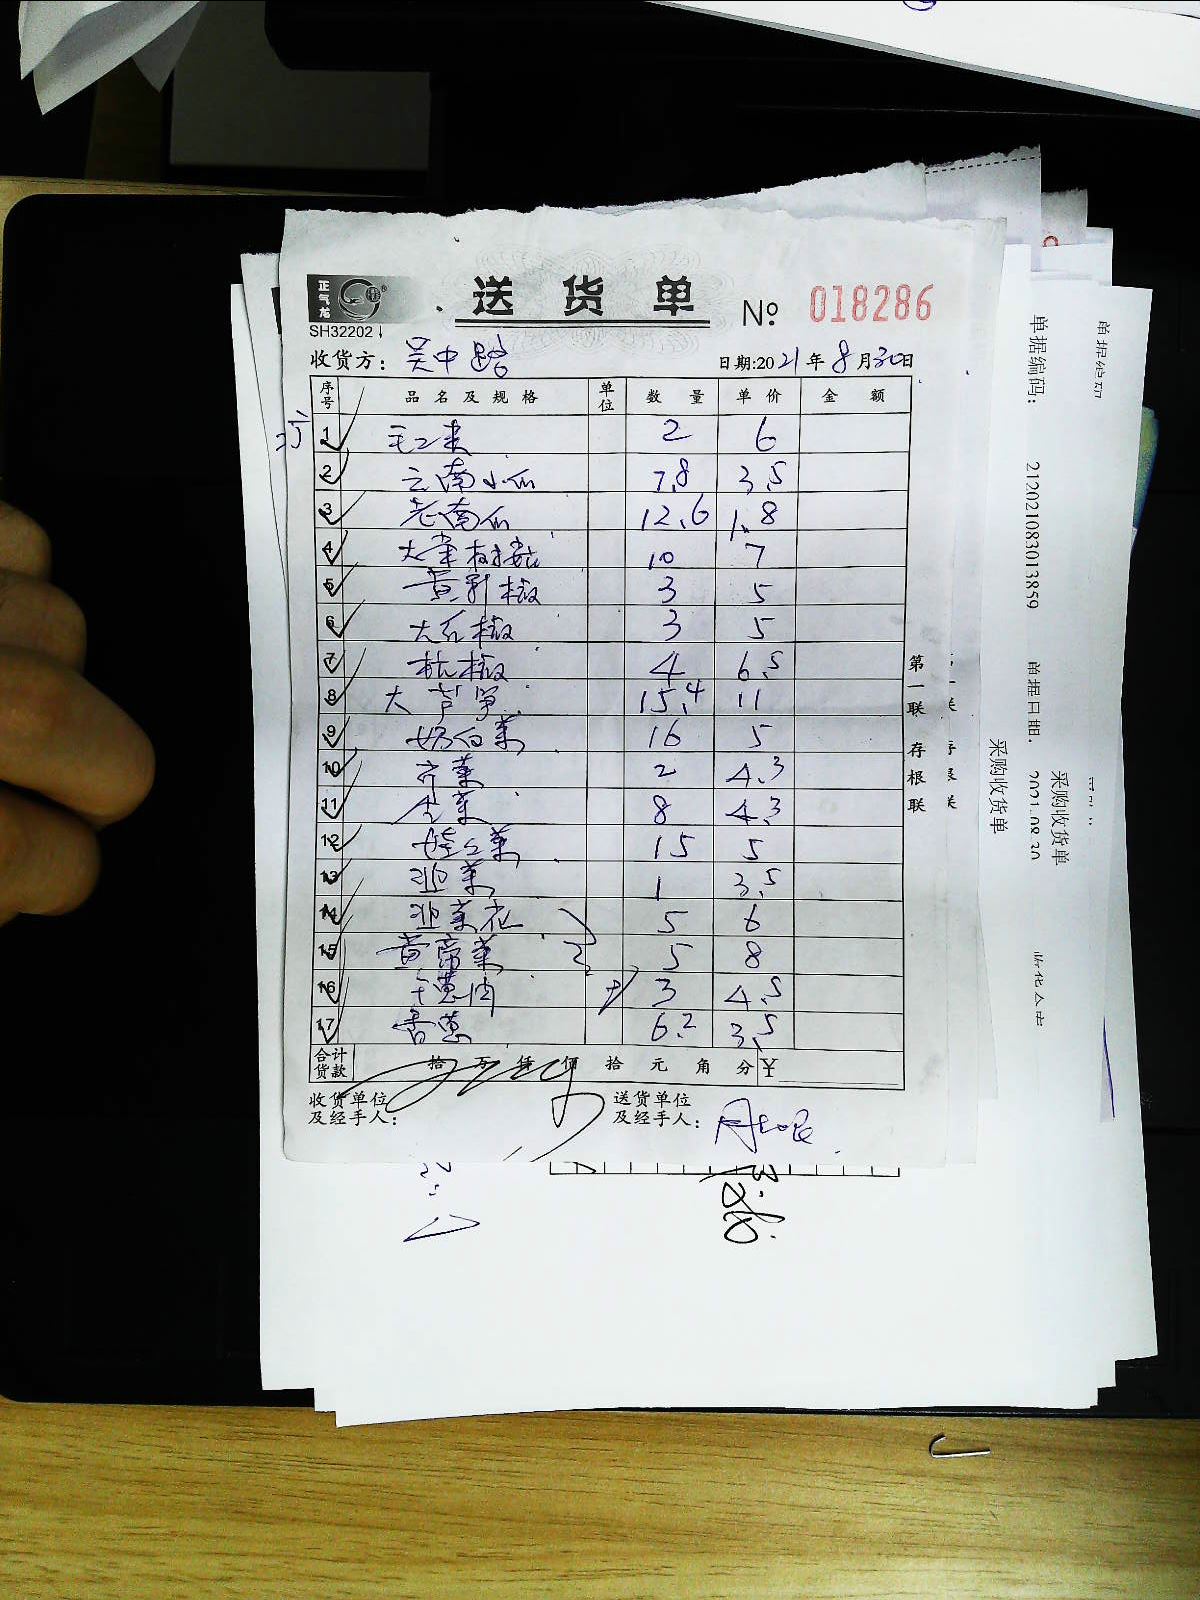 正气龙
SH32202
送 货 单 № 018286
收货方: 吴中路 日期:2021年8月30日
序号 品名及规格 单位 数量 单价 金额
1 毛豆夹 2 6
2 云南小瓜 7.8 3.5
3 老南瓜 12.6 1.8
4 大 10 7
5 黄彩椒 3 5
6 大红椒 3 5
7 杭椒 4 6.5
8 大芦笋 15.4 11
9 奶白菜 16 5
10 齐菜 2 4.3
11 生菜 8 4.3
12 娃娃菜 15 5
13 韭菜 1 3.5
14 韭菜花 5 6
15 黄帝菜 5 8
16 干葱肉 3 4.5
17 香葱 6.2 3.5
合计货款 拾 万 仟 佰 拾 元 角 分 ¥
收货单位及经手人: 送货单位及经手人:
第一联 存根联
采购收货单
单据编码: 212021083013859 单据日期: 2021.08.30
采购收货单
单据编码